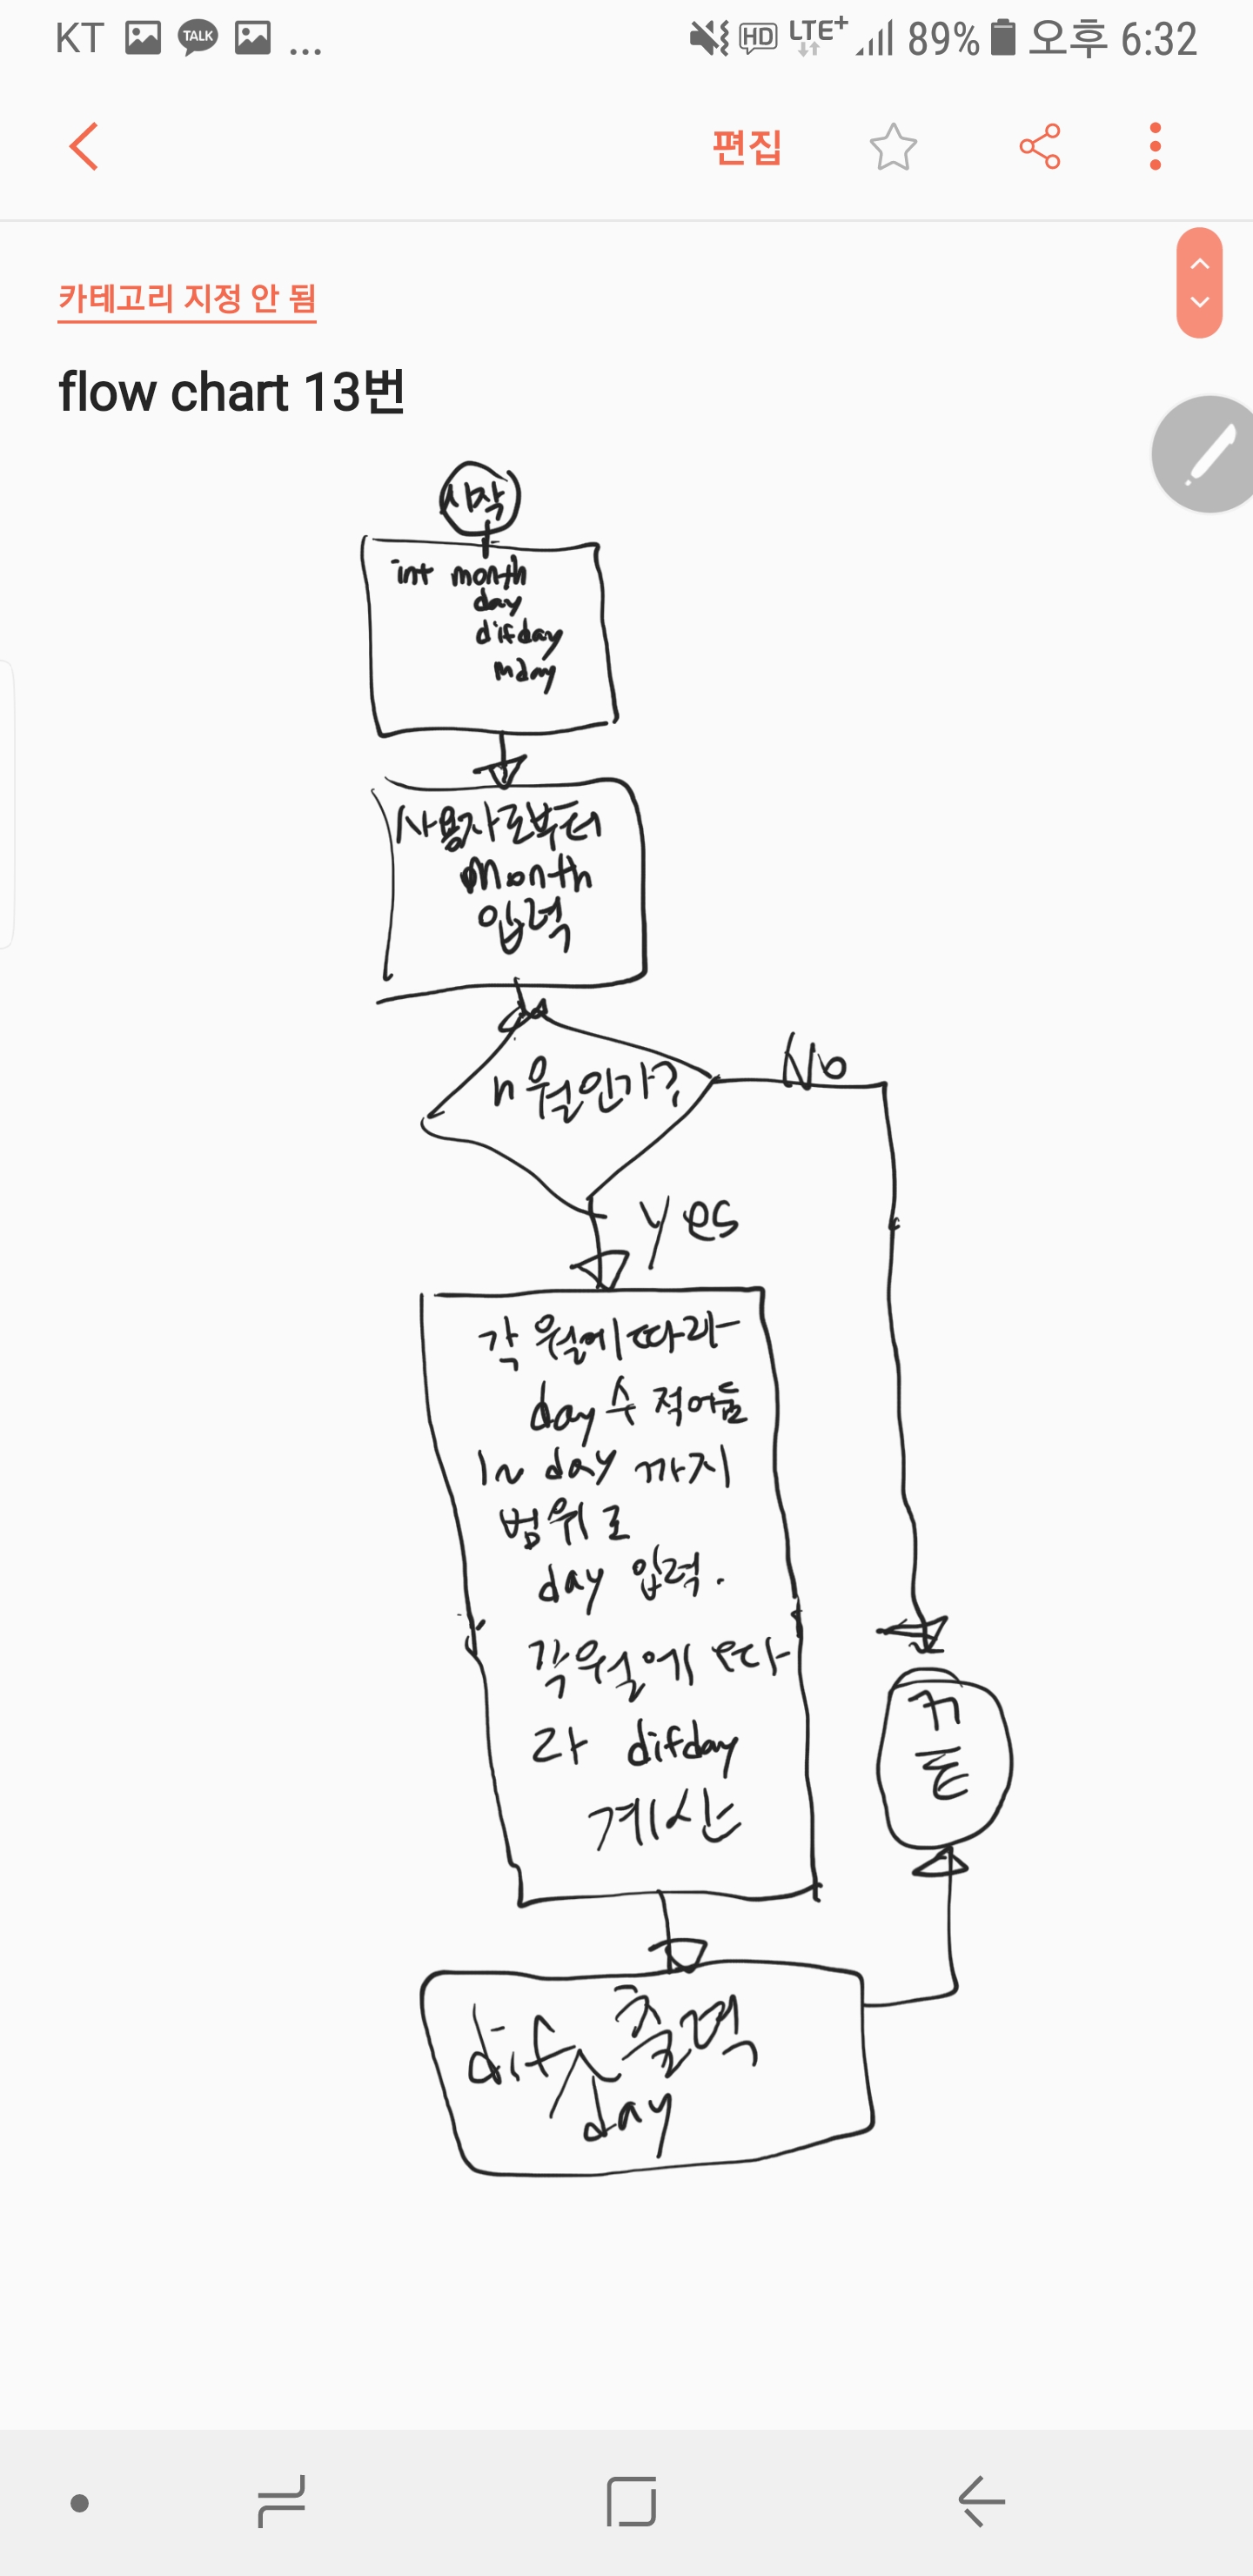 KT TALK ... HD LTE+ 89% 오후 6:32
편집
카테고리 지정 안 됨
flow chart 13번
시작
int month
day
difday
mday
사용자로부터
month
입력
n월인가?
No
yes
각 월에 따라
day 수 적어둠
day 까지
범위로
day 입력.
각 월에 따
라 difday
계산
dif 출력
day